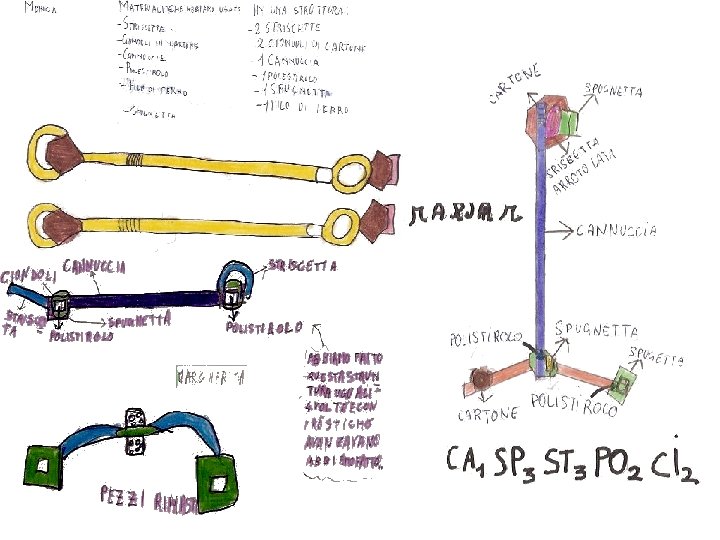 MONICA
MATERIALI CHE ABBIAMO USATO
-STRISCETTE
-CIONDOLI DI CARTONE
-CANNUCCIE
-POLISTIROLO
-FILO DI FERRO
-SPUGNETTA
IN UNA STRUTTURA:
-2 STRISCETTE
2 CIONDOLI DI CARTONE
-1 CANNUCCIA
-1 POLESTIROLO
-1 SPUGNETTA
-1 FILO DI FERRO
CARTONE
SPUGNETTA
STRISCETTA
ARROTOLATA
CANNUCCIA
CIONDOLI
CANNUCCIA
STRISCETTA
SPUGNETTA
POLISTIROLO
POLISTIROLO
MARGHERITA
ABBIAMO FATTO
QUESTA STRUT
TURA UGUALI
4 VOLTE E CON
I POSTICHE
AVANZAVANO
PEZZI RIMASTI
POLISTIROLO
SPUGNETTA
SPUGETTA
CARTONE
POLISTIROLO
CA1 SP3 ST3 PO2 Ci2